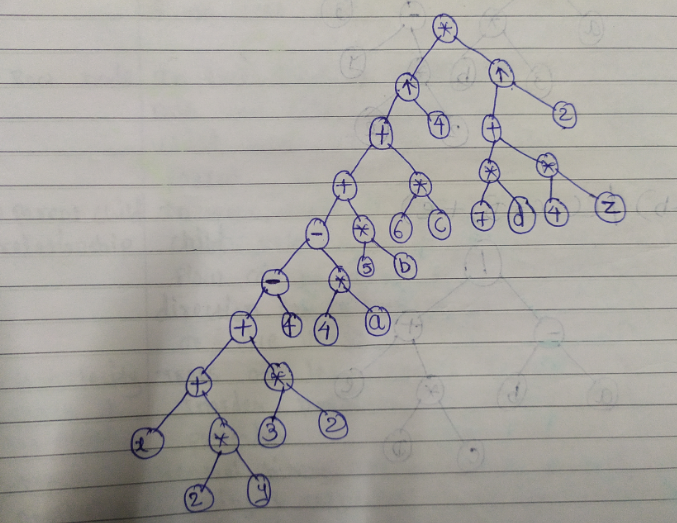 *
↑ ↑
+ 4 + 2
+ * * *
- * 6 c 7 d 4 z
- * 5 b
+ 4 4 a
+ *
* 3 2
2 y